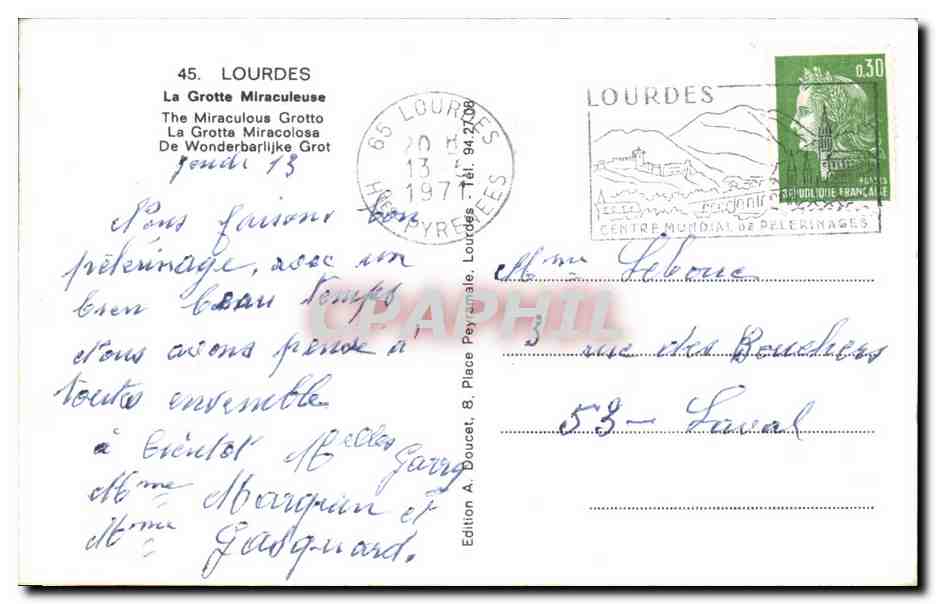 45. LOURDES
La Grotte Miraculeuse
The Miraculous Grotto
La Grotta Miracolosa
De Wonderbarlijke Grot
jeudi 13
Nous faisons bon
pèlerinage, avec un
bien beau temps
Nous avons pensé à
toutes ensemble
à bientôt Melles Garry
Mme Margrian et
Mme Gasguard.
Edition A. Doucet, 8, Place Peyramale, Lourdes - Tél. 94.27.08
65 LOURDES
20 H
13 - 5
1971
HTES PYRENEES
LOURDES
CENTRE MUNDIAL DE PELERINAGES
0,30
POSTES
REPUBLIQUE FRANÇAISE
Mme Lebouc
3 rue des Bouchers
53 - Laval
CPAPHIL